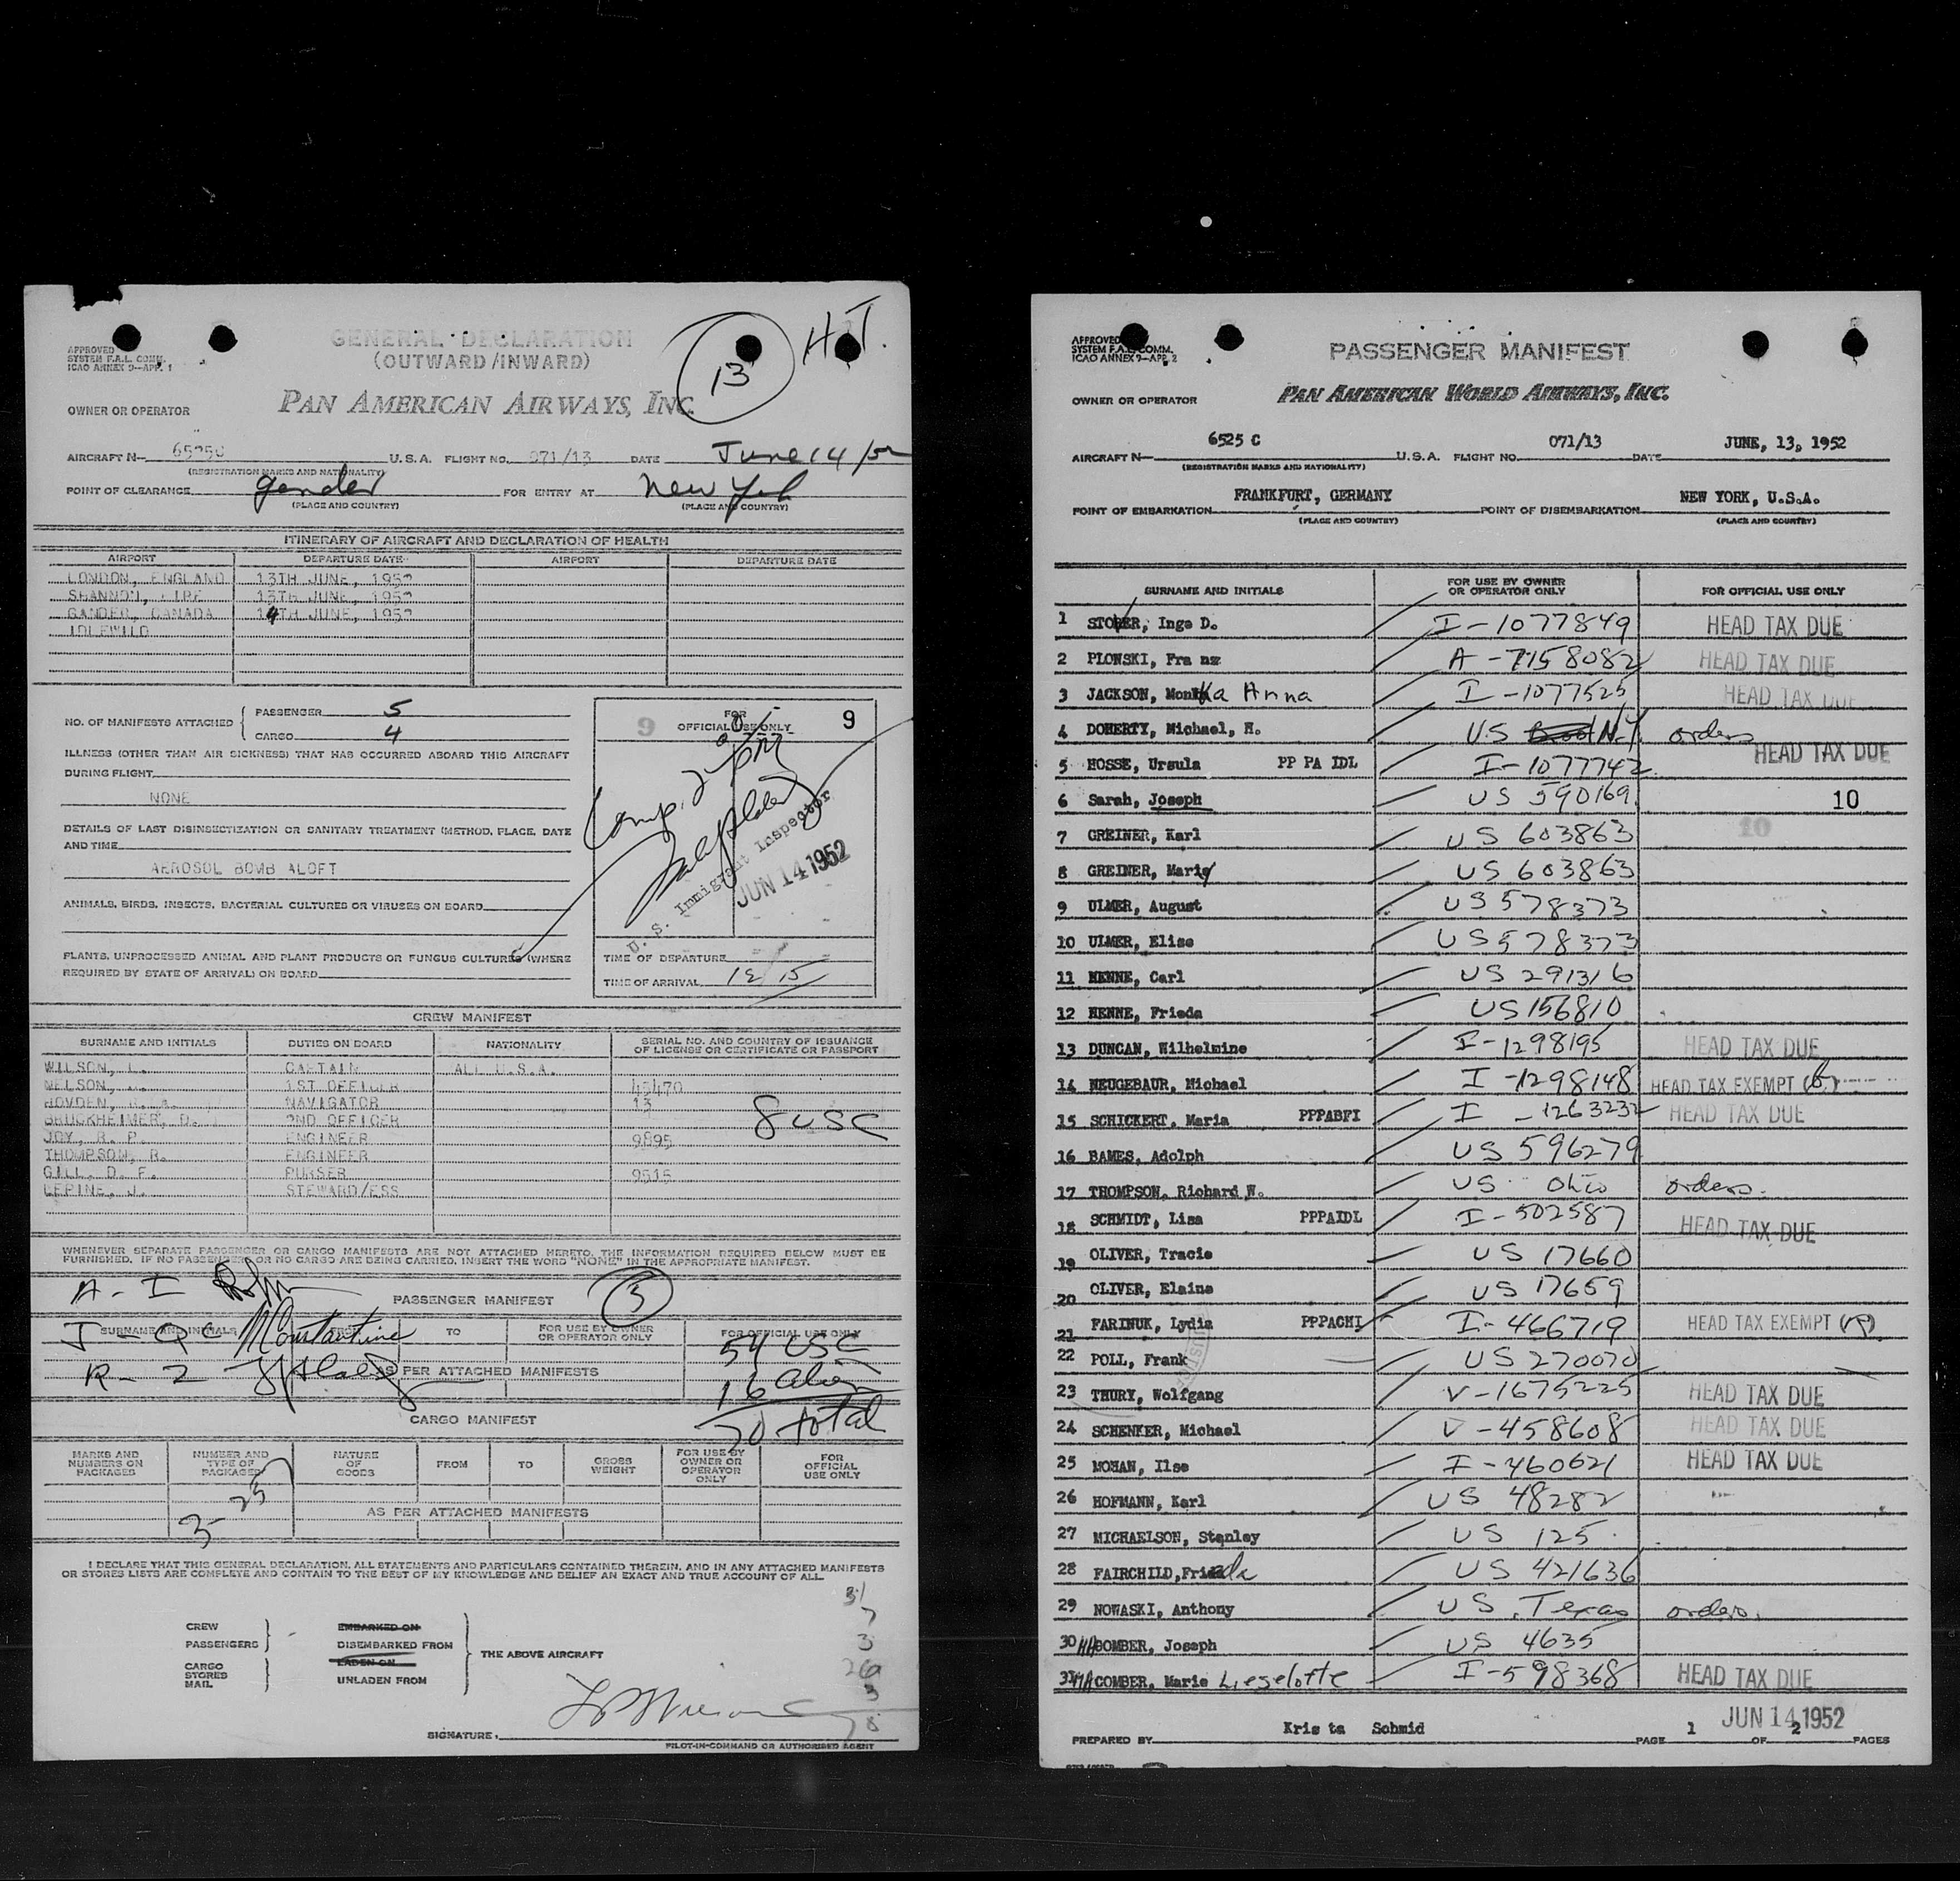 GENERAL DECLARATION
(OUTWARD/INWARD)
13
H.T.
APPROVED
SYSTEM F.A.L. COMM.
ICAO ANNEX 9—APP. 1
OWNER OR OPERATOR PAN AMERICAN AIRWAYS, INC.
AIRCRAFT N— 6525C U.S.A. FLIGHT NO. 071/13 DATE June 14/52
(REGISTRATION MARKS AND NATIONALITY)
POINT OF CLEARANCE gander FOR ENTRY AT new york
(PLACE AND COUNTRY) (PLACE AND COUNTRY)
ITINERARY OF AIRCRAFT AND DECLARATION OF HEALTH
AIRPORT DEPARTURE DATE AIRPORT DEPARTURE DATE
LONDON, ENGLAND 13TH JUNE, 1952
SHANNON, EIRE 13TH JUNE, 1952
GANDER, CANADA 14TH JUNE, 1952
IDLEWILD
NO. OF MANIFESTS ATTACHED
PASSENGER 5
CARGO 4
ILLNESS (OTHER THAN AIR SICKNESS) THAT HAS OCCURRED ABOARD THIS AIRCRAFT
DURING FLIGHT
NONE
DETAILS OF LAST DISINSECTIZATION OR SANITARY TREATMENT (METHOD, PLACE, DATE
AND TIME
AEROSOL BOMB ALOFT
ANIMALS, BIRDS, INSECTS, BACTERIAL CULTURES OR VIRUSES ON BOARD
PLANTS, UNPROCESSED ANIMAL AND PLANT PRODUCTS OR FUNGUS CULTURES (WHERE
REQUIRED BY STATE OF ARRIVAL) ON BOARD
9 FOR 9
OFFICIAL USE ONLY
U. S. Immigrant Inspector
JUN 14 1952
TIME OF DEPARTURE
TIME OF ARRIVAL 12 15
CREW MANIFEST
SURNAME AND INITIALS DUTIES ON BOARD NATIONALITY SERIAL NO. AND COUNTRY OF ISSUANCE
OF LICENSE OR CERTIFICATE OR PASSPORT
WILSON, L. CAPTAIN ALL U.S.A.
NELSON, 1ST OFFICER 45470
HOVDEN, NAVIGATOR 13
BRUCKHEIMER, D. 2ND OFFICER
8 USC
JOY, R. P. ENGINEER 9895
THOMPSON, R. ENGINEER
GILL, D. F. PURSER 9515
LEPINE, J. STEWARD/ESS
WHENEVER SEPARATE PASSENGER OR CARGO MANIFESTS ARE NOT ATTACHED HERETO, THE INFORMATION REQUIRED BELOW MUST BE
FURNISHED. IF NO PASSENGERS OR NO CARGO ARE BEING CARRIED, INSERT THE WORD "NONE" IN THE APPROPRIATE MANIFEST.
A - I
PASSENGER MANIFEST
5
SURNAME AND INITIALS TO FOR USE BY OWNER
OR OPERATOR ONLY FOR OFFICIAL USE ONLY
I - Q C MConstantine
54 USC
R - 2
AS PER ATTACHED MANIFESTS
16 alien
70 total
CARGO MANIFEST
MARKS AND
NUMBERS ON
PACKAGES NUMBER AND
TYPE OF
PACKAGES NATURE
OF
GOODS FROM TO GROSS
WEIGHT FOR USE BY
OWNER OR
OPERATOR
ONLY FOR
OFFICIAL
USE ONLY
3-25
AS PER ATTACHED MANIFESTS
I DECLARE THAT THIS GENERAL DECLARATION, ALL STATEMENTS AND PARTICULARS CONTAINED THEREIN, AND IN ANY ATTACHED MANIFESTS
OR STORES LISTS ARE COMPLETE AND CONTAIN TO THE BEST OF MY KNOWLEDGE AND BELIEF AN EXACT AND TRUE ACCOUNT OF ALL
CREW
PASSENGERS
CARGO
STORES
MAIL
EMBARKED ON
DISEMBARKED FROM
LADEN ON
UNLADEN FROM
THE ABOVE AIRCRAFT
31
7
3
26
3
78
SIGNATURE,
PILOT-IN-COMMAND OR AUTHORISED AGENT
APPROVED
SYSTEM F.A.L. COMM.
ICAO ANNEX 9—APP. 2
PASSENGER MANIFEST
OWNER OR OPERATOR PAN AMERICAN WORLD AIRWAYS, INC.
AIRCRAFT N— 6525 C U.S.A. FLIGHT NO. 071/13 DATE JUNE, 13, 1952
(REGISTRATION MARKS AND NATIONALITY)
POINT OF EMBARKATION FRANKFURT, GERMANY POINT OF DISEMBARKATION NEW YORK, U.S.A.
(PLACE AND COUNTRY) (PLACE AND COUNTRY)
SURNAME AND INITIALS FOR USE BY OWNER
OR OPERATOR ONLY FOR OFFICIAL USE ONLY
1 STOBER, Inge D. I-1077849 HEAD TAX DUE
2 PLONSKI, Fra nz A-7158082 HEAD TAX DUE
3 JACKSON, Monika Anna I-1077525 HEAD TAX DUE
4 DOHERTY, Michael, H. US N.Y. orders
5 HOSSE, Ursula PP PA IDL I-1077742 HEAD TAX DUE
6 Sarah, Joseph US 590169 10
7 GREINER, Karl US 603863 10
8 GREINER, Marie US 603863
9 ULMER, August US 578373
10 ULMER, Elise US 578373
11 HENNE, Carl US 291316
12 HENNE, Frieda US 156810
13 DUNCAN, Wilhelmine I-1298195 HEAD TAX DUE
14 NEUGEBAUR, Michael I-1298148 HEAD TAX EXEMPT
15 SCHICKERT, Maria PPPABFI I-1263232 HEAD TAX DUE
16 BAMES, Adolph US 596279
17 THOMPSON, Richard W. US Ohio orders.
18 SCHMIDT, Lisa PPPAIDL I-502587 HEAD TAX DUE
19 OLIVER, Tracie US 17660
20 OLIVER, Elaine US 17659
21 FARINUK, Lydia PPPACHI I-466719 HEAD TAX EXEMPT
22 POLL, Frank US 270070
23 THURY, Wolfgang V-1675225 HEAD TAX DUE
24 SCHENKER, Michael V-458608 HEAD TAX DUE
25 MOHAN, Ilse I-460621 HEAD TAX DUE
26 HOFMANN, Karl US 48282
27 MICHAELSON, Stanley US 125
28 FAIRCHILD, Frieda US 421636
29 NOWASKI, Anthony US Texas orders.
30 BOMBER, Joseph US 4635
31 COMBER, Marie Lieselotte I-598368 HEAD TAX DUE
JUN 14 1952
PREPARED BY Kris ta Schmid PAGE 1 OF 2 PAGES